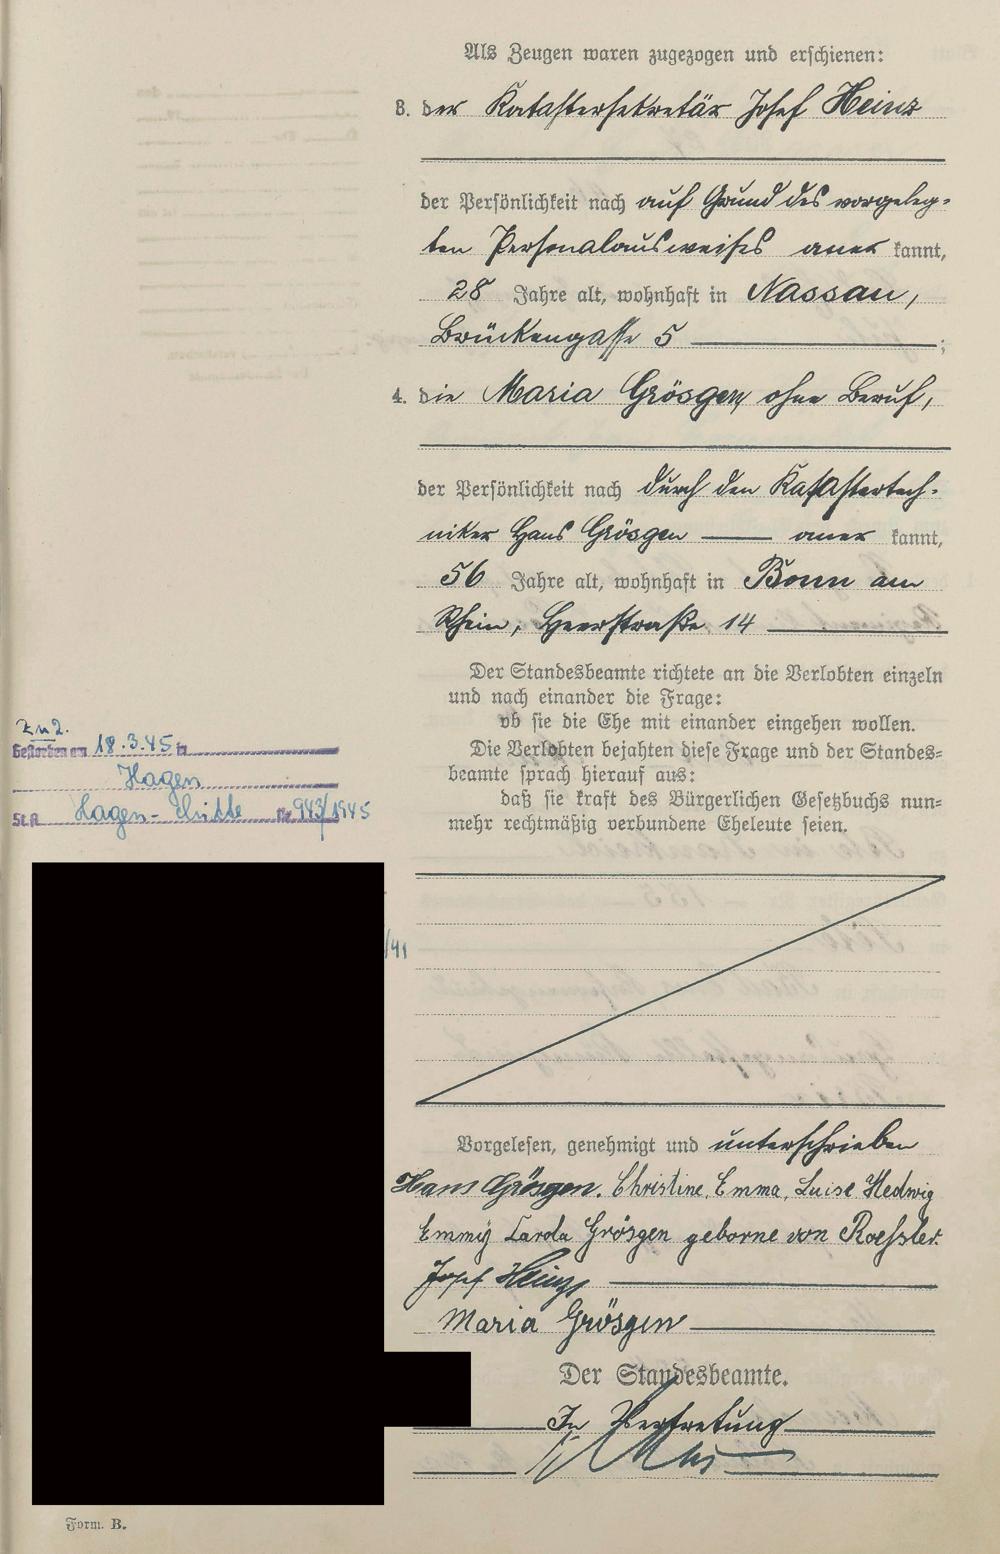 Als Zeugen waren zugezogen und erschienen:
3. der Katastersekretär Josef Heinz
der Persönlichkeit nach auf Grund des vorgeleg-
ten Personalausweises aner kannt,
28 Jahre alt, wohnhaft in Nassau,
Brückengasse 5 ;
4. die Maria Grösgen, ohne Beruf,
der Persönlichkeit nach durch den Katastertech-
niker Hans Grösgen aner kannt,
56 Jahre alt, wohnhaft in Bonn am
Rhein, Heerstraße 14
Der Standesbeamte richtete an die Verlobten einzeln
und nach einander die Frage:
ob sie die Ehe mit einander eingehen wollen.
Die Verlobten bejahten diese Frage und der Standes-
beamte sprach hierauf aus:
daß sie kraft des Bürgerlichen Gesetzbuchs nun-
mehr rechtmäßig verbundene Eheleute seien.
Zu 2.
Gestorben am 18.3.45 in
Hagen
St.A. Hagen-Mitte Nr. 943/1945
/41
Vorgelesen, genehmigt und unterschrieben
Hans Grösgen. Christine, Emma, Luise Hedwig
Emmy Carola Grösgen geborne von Roessler.
Josef Heinz
Maria Grösgen
Der Standesbeamte.
In Vertretung
Form. B.